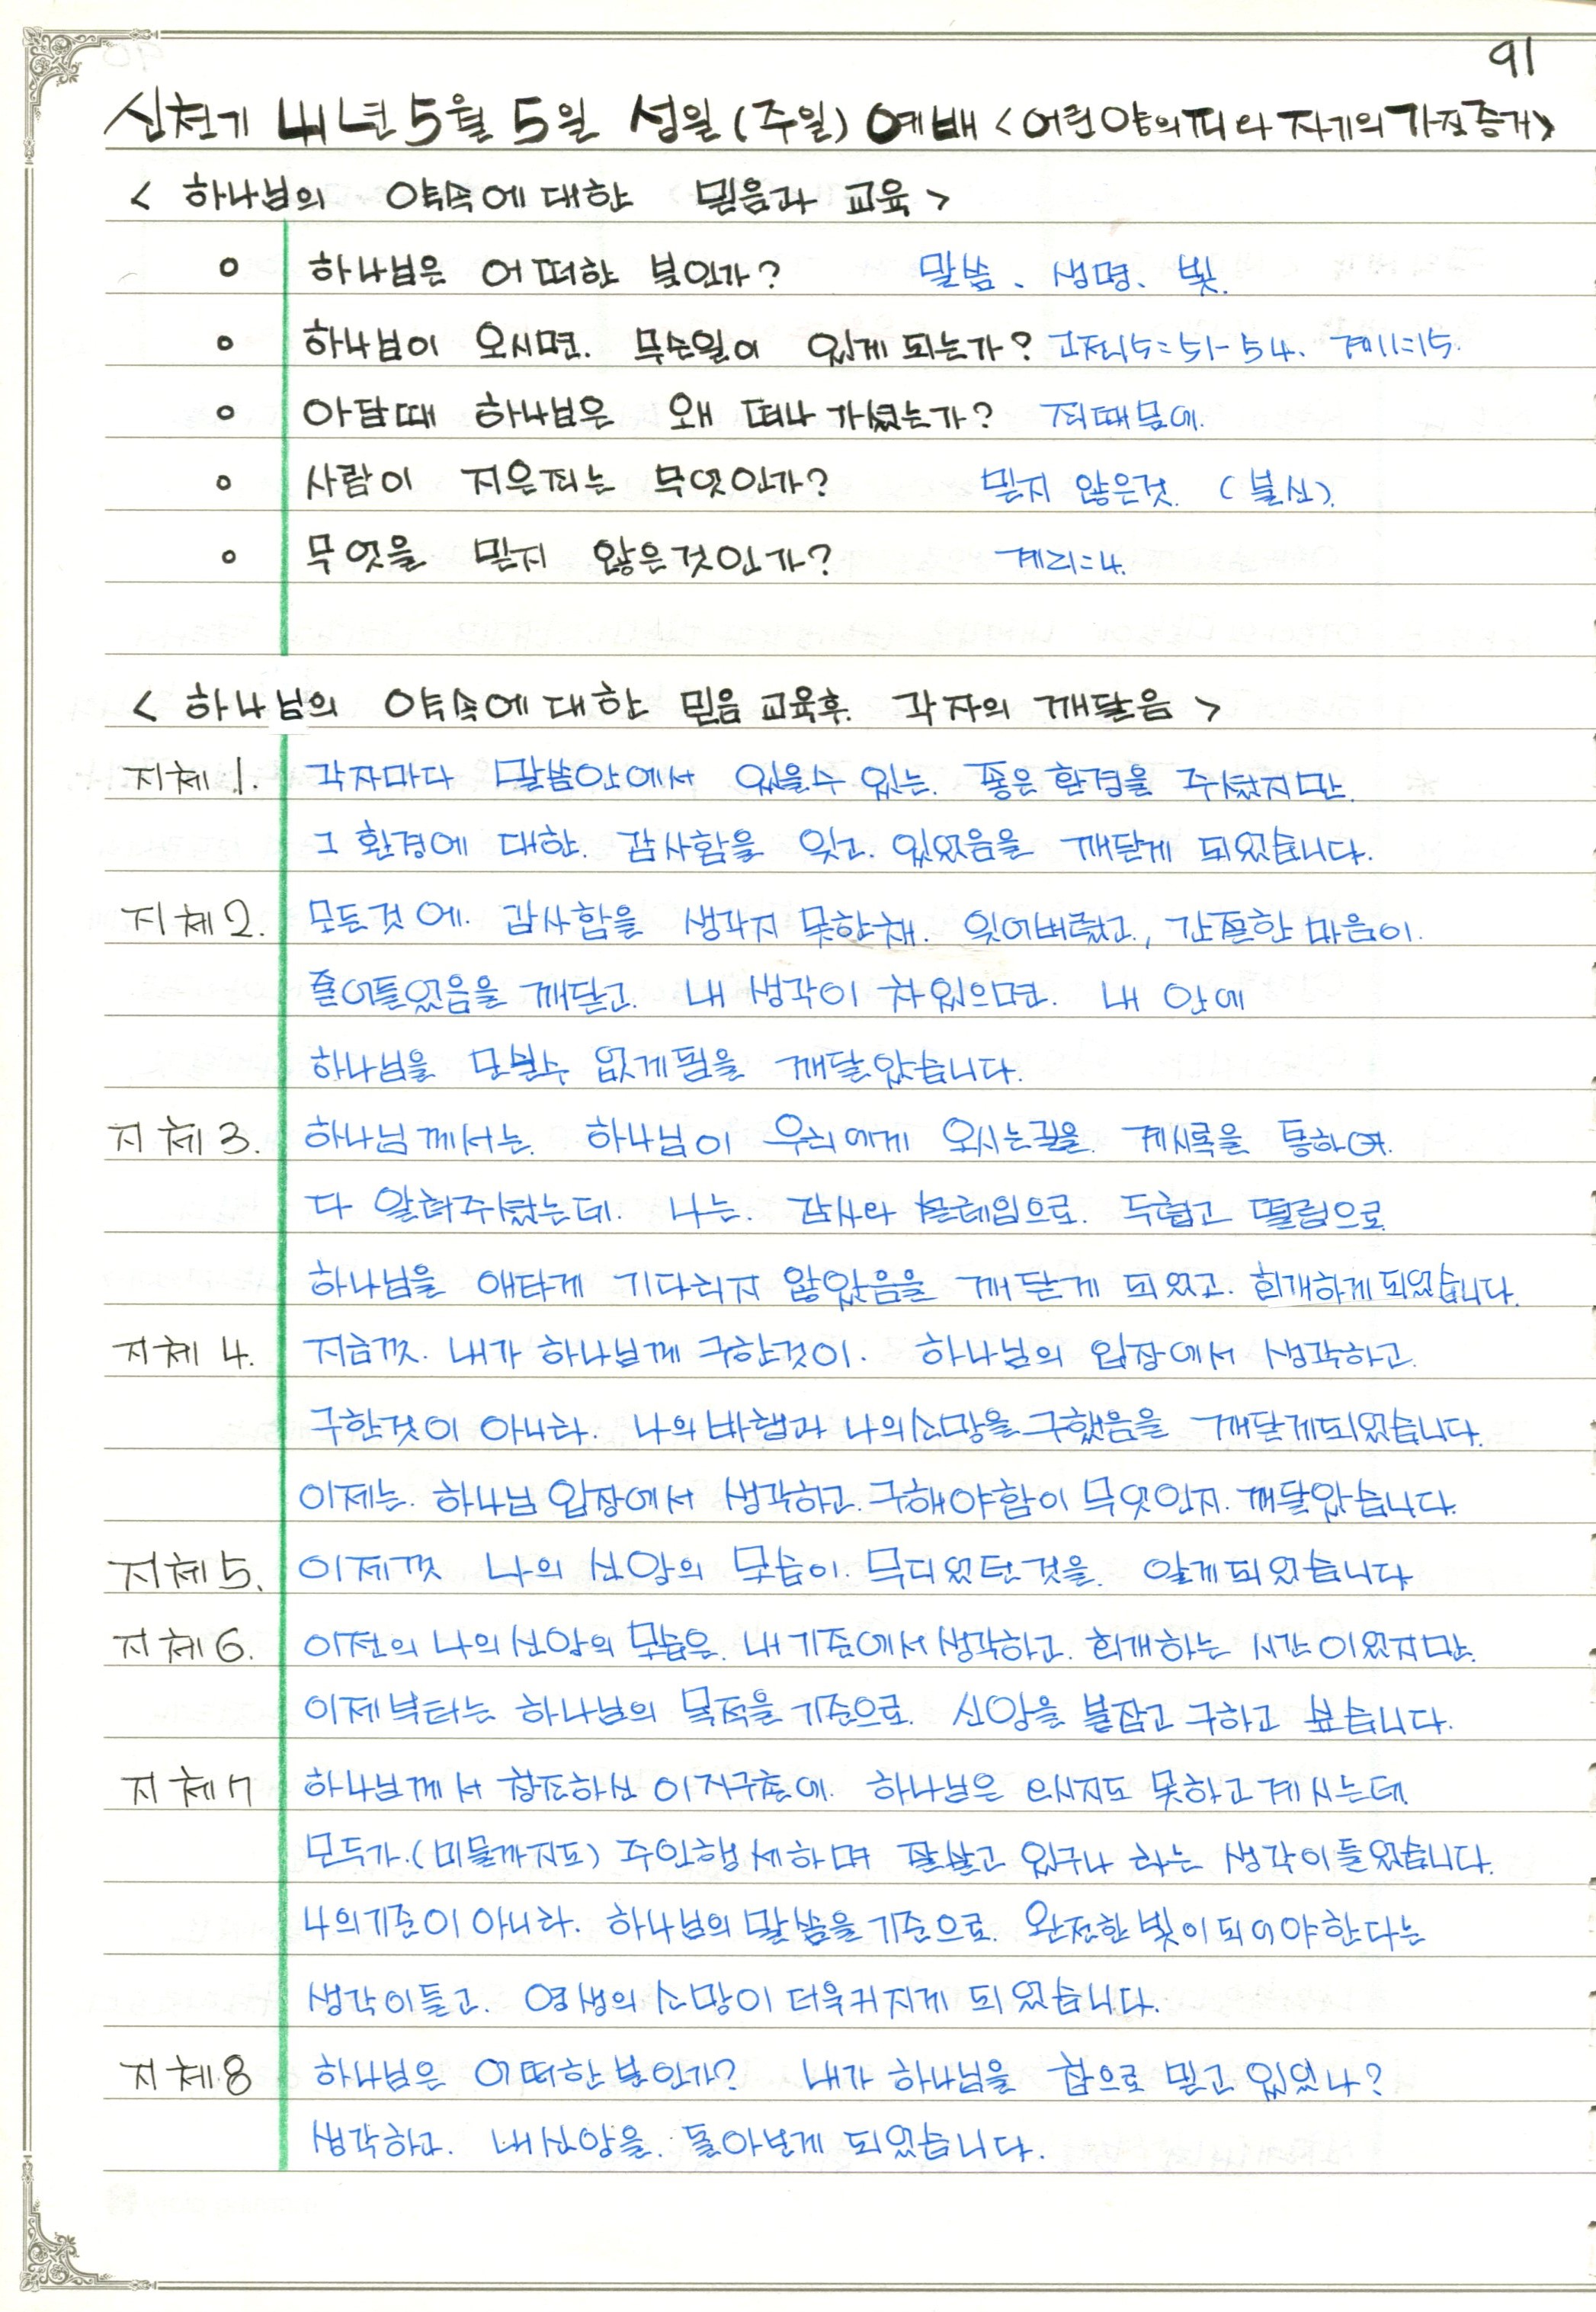 91
신천기 41년 5월 5일 성일(주일) 예배 <어린양의 피와 자기의 가진 증거>
< 하나님의 약속에 대한 믿음과 교육 >
o 하나님은 어떠한 분인가? 말씀、생명、빛.
o 하나님이 오시면. 무슨일이 있게 되는가? 고전15=51-54. 계11=15.
o 아담때 하나님은 왜 떠나 가셨는가? 죄때문에.
o 사람이 지은죄는 무엇인가? 믿지 않은것. (불신).
o 무엇을 믿지 않은것인가? 계21=4.
< 하나님의 약속에 대한 믿음 교육후. 각자의 깨달음 >
지체 1. 각자마다 말씀안에서 있을수 있는. 좋은 환경을 주셨지만.
그 환경에 대한. 감사함을 잊고. 있었음을 깨닫게 되었습니다.
지체 2. 모든것에. 감사함을 생각지 못한채. 잊어버렸고, 간절한 마음이.
줄어들었음을 깨닫고. 내 생각이 차있으면. 내 안에
하나님을 모실수 없게됨을 깨달았습니다.
지체 3. 하나님께서는. 하나님이 우리에게 오시는길을. 계시록을 통하여.
다 알려주셨는데. 나는. 감사와 설레임으로. 두렵고 떨림으로
하나님을 애타게 기다리지 않았음을 깨닫게 되었고. 회개하게되었습니다.
지체 4. 지금껏. 내가 하나님께 구한것이. 하나님의 입장에서 생각하고.
구한것이 아니라. 나의 바램과 나의소망을 구했음을 깨닫게되었습니다.
이제는. 하나님 입장에서 생각하고. 구해야함이 무엇인지. 깨달았습니다.
지체 5. 이제껏 나의 신앙의 모습이. 무디었던것을. 알게되었습니다
지체 6. 이전의 나의 신앙의 모습은. 내 기준에서 생각하고. 회개하는 시간이었지만.
이제부터는 하나님의 목적을 기준으로. 신앙을 붙잡고 구하고 싶습니다.
지체 7 하나님께서 창조하신 이지구촌에. 하나님은 오시지도 못하고 계시는데
모두가.(미물까지도) 주인행세하며 잘살고 있구나 하는 생각이들었습니다.
나의기준이 아니라. 하나님의 말씀을 기준으로. 완전한 빛이 되어야한다는
생각이들고. 영생의 소망이 더욱커지게 되었습니다.
지체.8 하나님은 어떠한 분인가? 내가 하나님을 참으로 믿고 있었나?
생각하고. 내신앙을. 돌아보게 되었습니다.